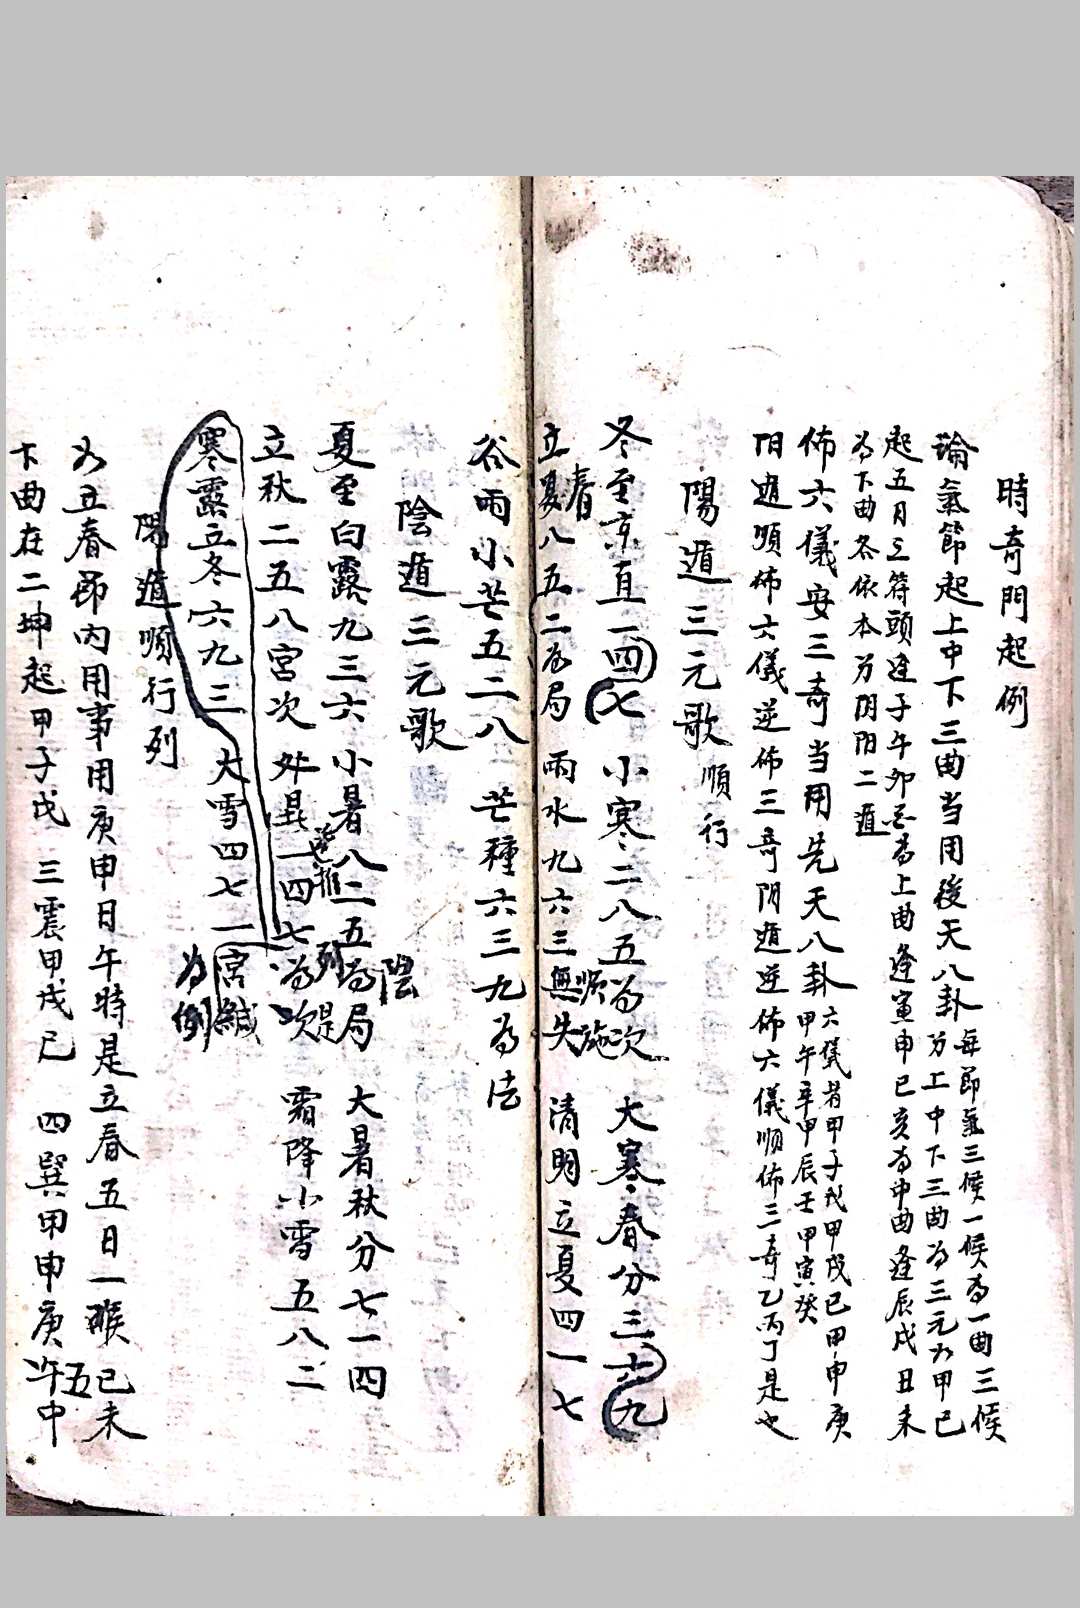 時奇門起例
論氣節起上中下三曲当用後天八卦每節氣三候一候為一曲三候
分上中下三曲為三元如甲己
起五日之符頭逢子午卯酉為上曲逢寅申巳亥為中曲逢辰戌丑未
為下曲各依本分阴阳二遁
佈六儀安三奇当用先天八卦六儀者甲子戊甲戌己甲申庚
甲午辛甲辰壬甲寅癸
阳遁順佈六儀逆佈三奇阴遁逆佈六儀順佈三奇乙丙丁是也
陽遁三元歌順行
冬至京直一四七 小寒二八五為次 大寒春分三十六九
立夏春八五二為局 雨水九六三無失順施 清明立夏四一七
谷雨小芒五二八 芒種六三九為法
陰遁三元歌
夏至白露九三六 小暑八二五為局 大暑秋分七一四
陰
立秋二五八宮次 逆推一四七為次列是 霜降小雪五八二
寒露立冬六九三 大雪四七一宮緘
為例
陽遁順行列
如立春節内用事用庚申日午時是立春五日一候己未
下曲在二坤起甲子戊 三震甲戌己 四巽甲申庚 五中